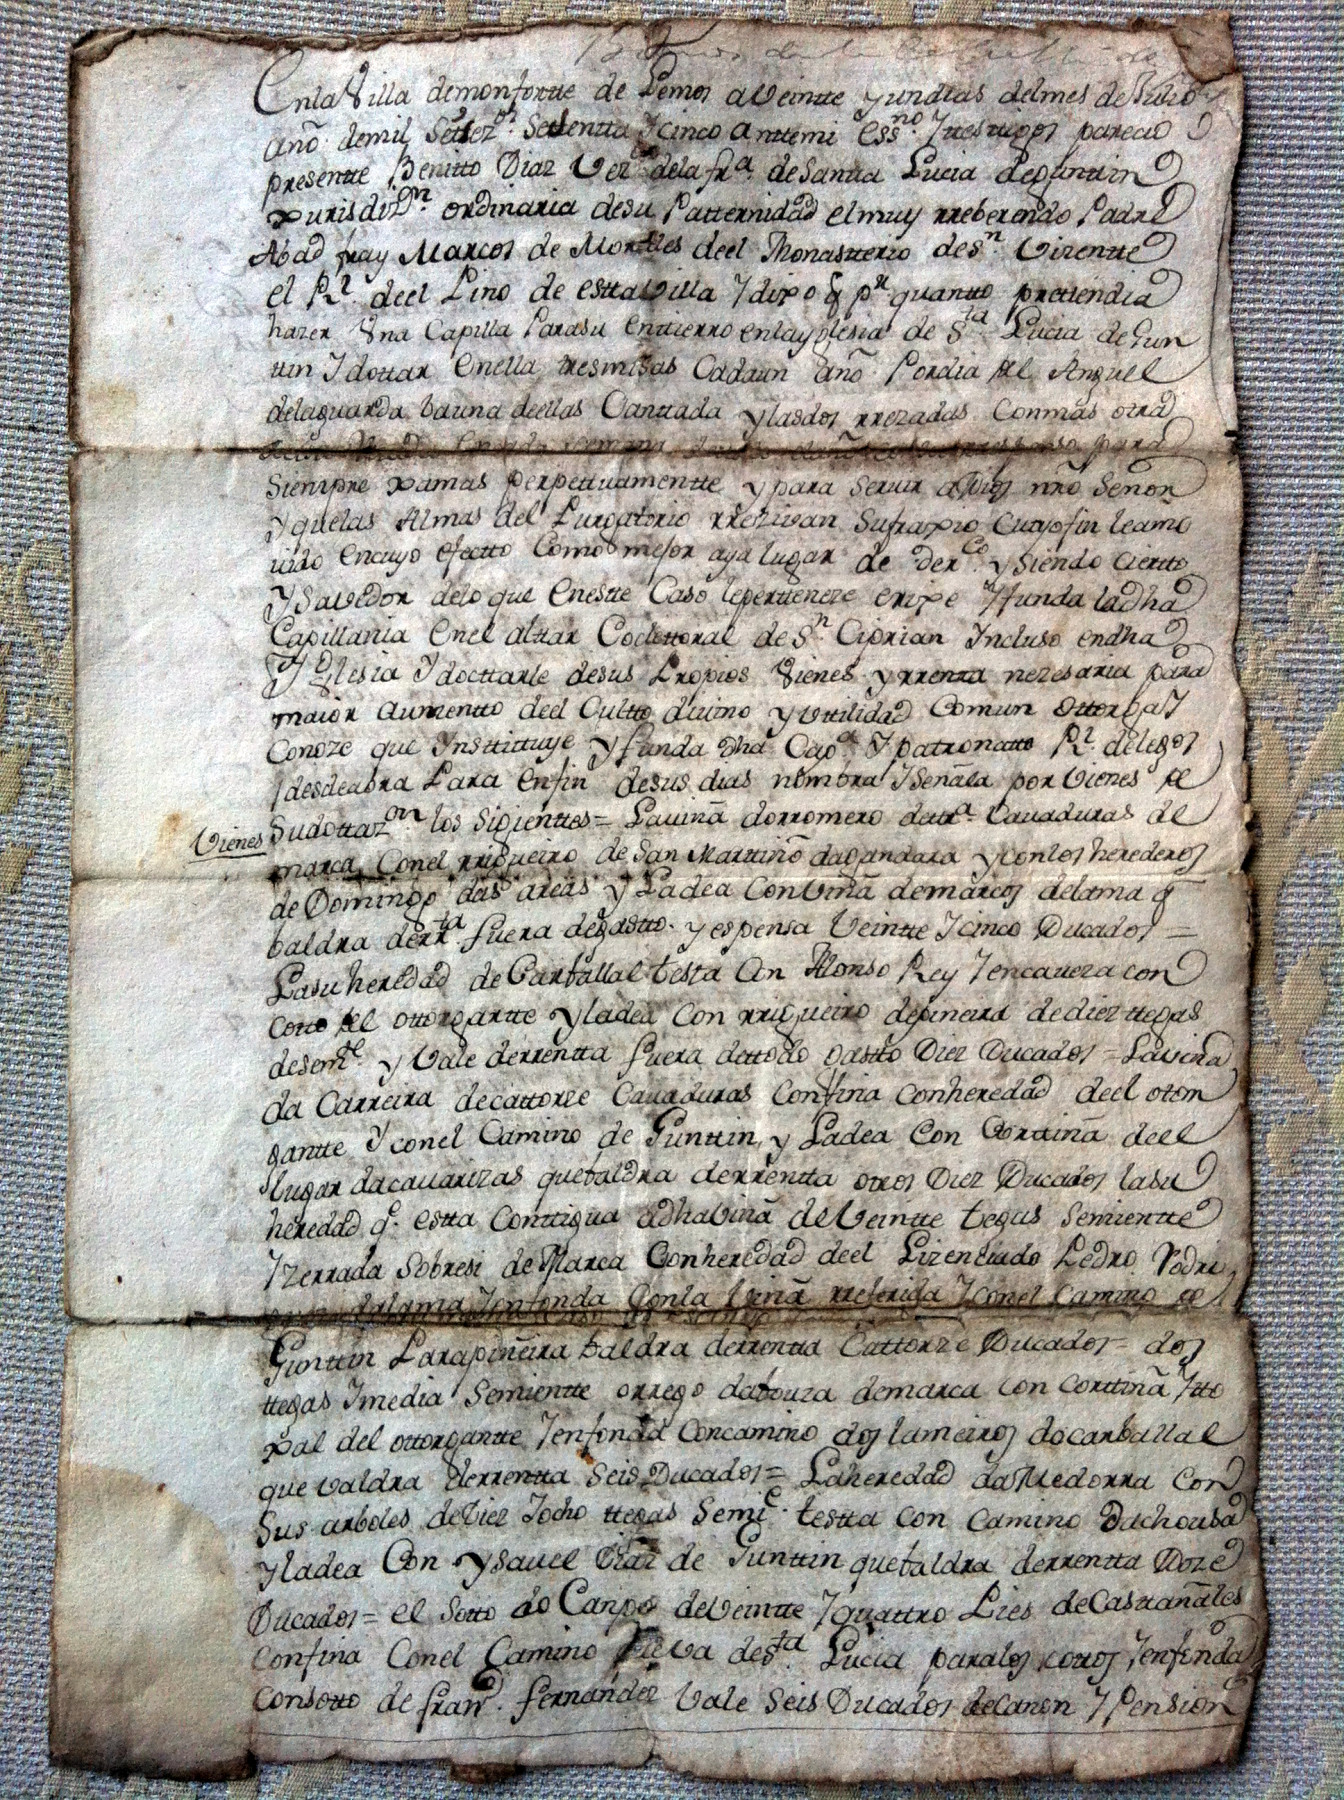 Enla Villa demonfortte de Lemos aveintte yundias delmes deJulio
año demil Settezos. Settentta Jcinco anttemi essno. Jttestigos parecio
presentte Benitto Diaz Vezo. dela fra. deSantta Lucia deguntin
xurisdizon. ordinaria desu Patternidad elmuy rreberendo Padre
Abad fray Marcos de deel Monastterio desn. Vizentte
el Rl. deel Pino de esttavilla Jdixo q pr quantto prettendia
hazer Una Capilla Parasu enttierro enlayglesia de Sta Lucia deGun
ttin Jdottar enella ttresmisas Cadaun año Pordia del Anguel
delaguarda launa deellas Canttada ylasdos rrezadas conmas otra
Siempre xamas perpettuamentte y para Servir aDios nro Señor
yquelas Almas del Purgatorio rrezivan Sufraxio cuyofin leamo
vido encuyo efectto Como mejor aya lugar de Derco. y Siendo cierto
y Savedor delo que enestte Caso lepertteneze erixe Jfunda ladha
Capillania enel alttar Colettoral de Sn. Ciprian Incluso endha
Yglesia Jdocttarle desus Propios Vienes yrrentta nezesaria para
maior aumentto deel Cultto divino y Uttilidad Comun ottorga J
Conoze que Ynstittuye yfunda dha Capa. Jpatronatto Rl. delegos
Jdesdeahra Para enfin desus dias nombra Jseñala por Vienes de
Vienes Sudottazon los Sigienttes = Laviña dorromero dettra. Cavaduras de
marca Conel rrigueiro de San Martiño dagandara yconlos herederos
de Domingo das areas y Ladea Conviña demarcos delama q
baldra derrta. fuera degastto. yespensa Veintte Jcinco Ducados =
Lasu heredad de Carballal testa Con Alonso Rey Jencaveza con
Cotto del ottorgantte yladea con rrigueiro depineira dediez ttegas
deseme. y Vale derrentta fuera dettodo gastto Diez Ducados = Laviña
da Carreira decattorze Cavaduras Confina conheredad deel otor
gantte Yconel Camino de Gunttin y Ladea Con Corttiña deel
lugar dacavarizas quebaldra derrentta otros Diez Ducados lasu
heredad qe. estta Conttigua adhaviña deVeintte tegas Semientte
Jzerrada Sobresi deMarca Conheredad deel Lizenciado Pedro Rodri
guez delama Jenfonda Conla Viña rreferida Jconel Camino de
Gunttin Parapiñeira baldra derrentta Cattorze Ducados = dos
ttegas Jmedia Semientte orrego dabouza demarca con corttiña Jtto
xal del ottorgantte Jenfonda Concamino dos lameiros docarballal
que valdra derrentta Seis Ducados = Laheredad daMedorra Con
Sus arboles deDiez Jocho ttegas Semie. testta con Camino Dachousa
yladea Con Ysavel Diaz de Gunttin quebaldra derrentta Doze
Ducados = el Sotto do Canpo deVeintte Jquattro Pies deCasttañales
Confina Conel Camino queva desta. Lucia paralos cottos Jenfonda
Consotto de franco. fernandez Vale Seis Ducados deCanon JPension